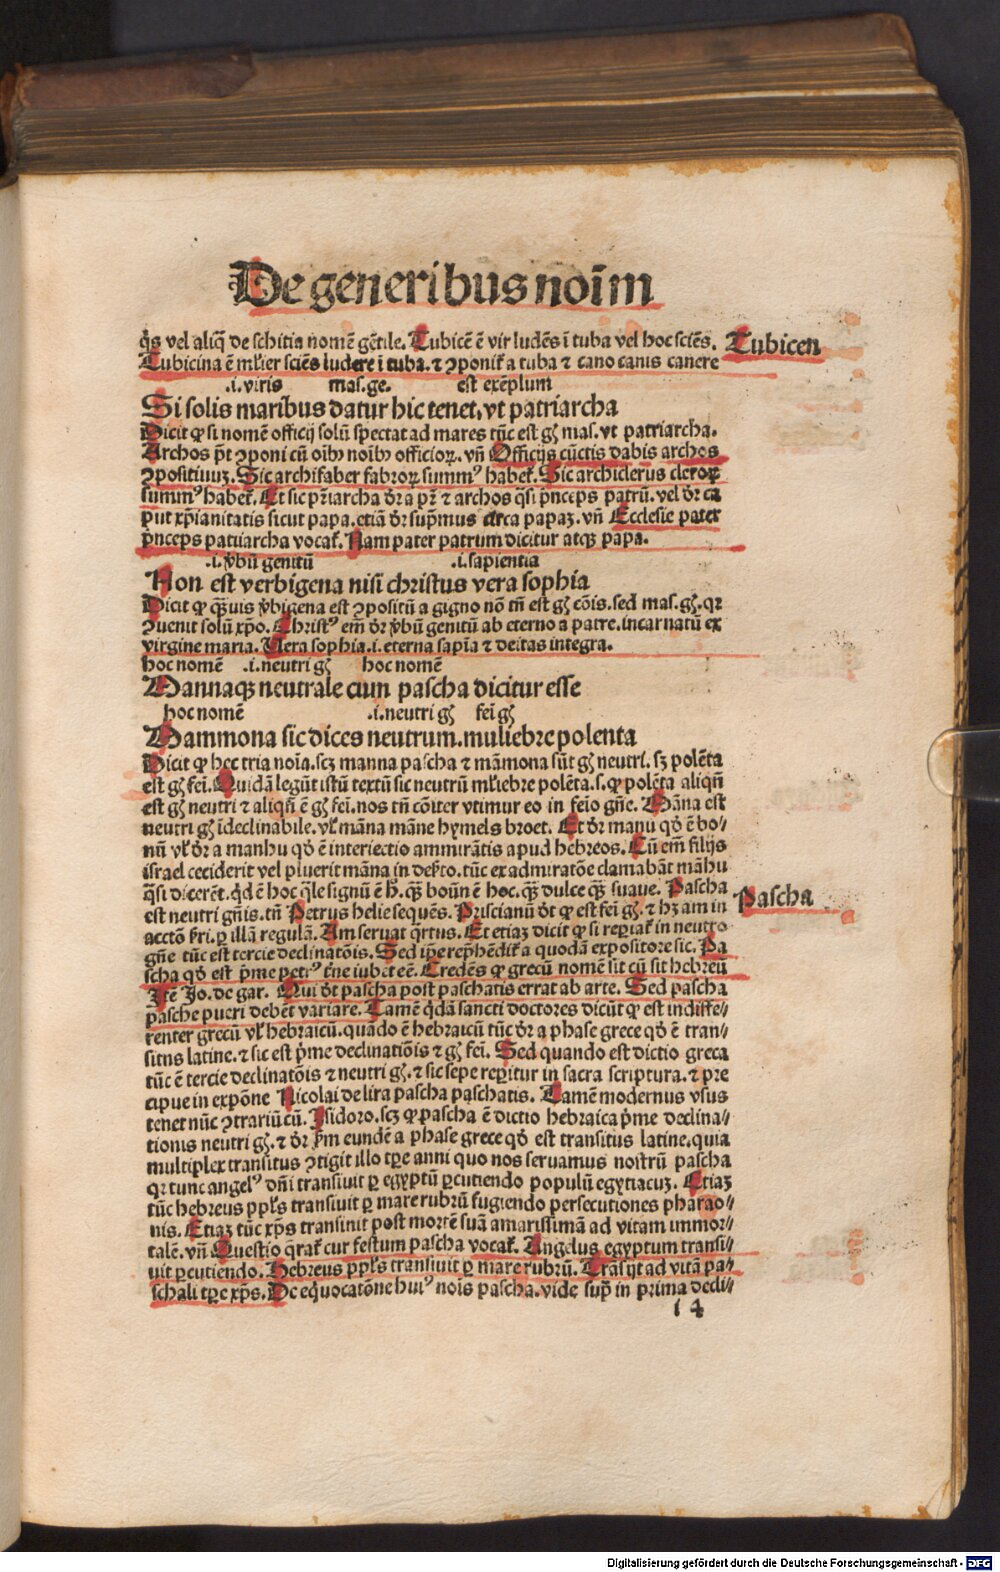 De generibus noīm
q̇s vel aliq̄ de schitia nomē gētile. Tubicē ē vir ludēs ī tuba vel hoc sciēs. Tubicen
Tubicina ē mľier sciēs ludere ī tuba. ⁊ ꝯponiť a tuba ⁊ cano canis canere
.i. viris mas. ge. est exēplum
Si solis maribus datur hic tenet, vt patriarcha
Dicit ꝙ si nomē officij solū spectat ad mares tūc est gȝ mas. vt patriarcha.
Archos pt̄ ꝯponi cū oībꝰ noībꝰ officioꝝ. vn̄ Officijs cūctis dabis archos
ꝯpositiuuȝ. Sic archifaber fabroꝝ summꝰ habeť. Sic archiclerus cleroꝝ
summꝰ habeť. Et sic pr̄iarcha dr̄ a pr̄ ⁊ archos qsi pn̄ceps patrū. vel dr̄ ca
put xp̄ianitatis sicut papa. etiā dr̄ sup̄mus circa papaȝ. vn̄ Ecclesie pater
pn̄ceps patriarcha vocať. Nam pater patrum dicitur atqȝ papa.
.i. v̄bū genitū .i. sapientia
Non est verbigena nisi christus vera sophia
Dicit ꝙ q̄ȝuis v̄bigena est ꝯpositū a gigno nō tn̄ est gȝ cōis. sed mas. gȝ. qꝛ
ꝯuenit solū xp̄o. Christꝰ em̄ dr̄ v̄bū genitū ab eterno a patre. incarnatū ex
virgine maria. Uera sophia .i. eterna sapīa ⁊ deitas integra.
hoc nomē .i. neutri gȝ hoc nomē
Mannaqȝ neutrale cum pascha dicitur esse
hoc nomē .i. neutri gȝ fei gȝ
Mammona sic dices neutrum. muliebre polenta
Dicit ꝙ hec tria noīa. scȝ manna pascha ⁊ māmona sūt gȝ neutri. sȝ polēta
est gȝ fei. Quidā legūt istū textū sic neutrū mľiebre polēta. s. ꝙ polēta aliqn̄
est gȝ neutri ⁊ aliqn̄ ē gȝ fei. nos tn̄ cōiter vtimur eo in feīo gn̄e. Māna est
neutri gȝ īdeclinabile. vľ māna māne hymels broet. Et dr̄ manu qd̄ ē bo⸗
nū vľ dr̄ a manhu qd̄ ē interiectio ammirātis apud hebreos. Cū em̄ filijs
israel ceciderit vel pluerit māna in deſto. tūc ex admiratōe clamabāt māhu
q̄si dicerēt. qd̄ ē hoc q̄le signū ē h̄. q̄ȝ bonū ē hoc. q̄ȝ dulce q̄ȝ suaue. Pascha Pascha
est neutri gn̄is. tn̄ Petrus helie sequēs. Priscianū dt̄ ꝙ est fei gȝ. ⁊ hȝ am in
acctō ſri. ꝑ illā regulā. Am seruat q̄rtus. Et etiaȝ dicit ꝙ si reꝑiať in neutro
gn̄e tūc est tercie declinatōis. Sed ip̄e rep̄hēdiť a quodā expositore sic. Pa
scha qd̄ est p̄me petrꝰ tn̄e iubet eē. Credēs ꝙ grecū nomē sit cū sit hebreū
Itē Jo. de gar. Qui dt̄ pascha post paschatis errat ab arte. Sed pascha
pasche pueri debēt variare. Tamē qdā sancti doctores dicūt ꝙ est indiffe⸗
renter grecū vľ hebraicū. quādo ē hebraicū tūc dr̄ a phase grece qd̄ ē tran⸗
situs latine. ⁊ sic est p̄me declinatiōis ⁊ gȝ fei. Sed quando est dictio greca
tūc ē tercie declinatōis ⁊ neutri gȝ. ⁊ sic sepe reꝑitur in sacra scriptura. ⁊ pre
cipue in expōne Nicolai de lira pascha paschatis. Tamē modernus vsus
tenet nūc ꝯtrariū cū. Isidoro. scȝ ꝙ pascha ē dictio hebraica p̄me declina⸗
tionis neutri gȝ. ⁊ dr̄ ẜm eundē a phase grece qd̄ est transitus latine. quia
multiplex transitus ꝯtigit illo tp̄e anni quo nos seruamus nostrū pascha
qꝛ tunc angelꝰ dn̄i transiuit ꝑ egyptū ꝑcutiendo populū egyptiacuȝ. Etiaȝ
tūc hebreus ppľs transiuit ꝑ mare rubrū fugiendo persecutiones pharao⸗
nis. Etiaȝ tūc xp̄s transiuit post mortē suā amarissimā ad vitam immor⸗
talē. vn̄ Questio q̄rať cur festum pascha vocať. Angelus egyptum transi⸗
uit ꝑcutiendo. Hebreus ppľs transiuit ꝑ mare rubrū. Trāsijt ad vitā pa⸗
schali tp̄e xp̄s. De eq̇uocatōne huiꝰ nois pascha. vide supͥ in prima decli⸗
i 4
Digitalisierung gefördert durch die Deutsche Forschungsgemeinschaft - DFG